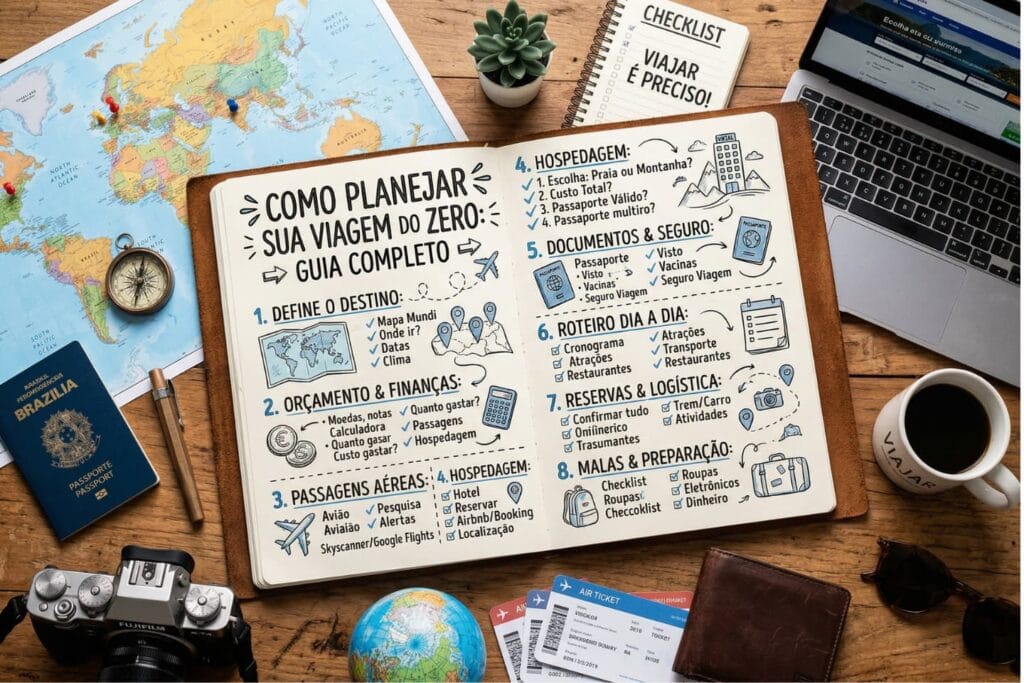 COMO PLANEJAR
SUA VIAGEM DO ZERO:
GUIA COMPLETO
1. DEFINE O DESTINO:
Mapa Mundi
Onde ir?
Datas
Clima
2. ORÇAMENTO & FINANÇAS:
Moedas, notas
Calculadora
Quanto gasar
Custo gastar?
Quanto gastar?
Passagens
Hospedagem
3. PASSAGENS AÉREAS:
Avião
Aviaião
Pesquisa
Alertas
Skyscanner/Google Flights
4. HOSPEDAGEM:
Hotel
Reservar
Airbnb/Booking
Localização
4. HOSPEDAGEM:
1. Escolha: Praia ou Montanha?
2. Custo Total?
3. Passaporte Válido?
4. Passaporte multiro?
5. DOCUMENTOS & SEGURO:
Passaporte
Visto
Vacinas
Seguro Viagem
Visto
Vacinas
Seguro Viagem
6. ROTEIRO DIA A DIA:
Cronograma
Atrações
Restaurantes
Atrações
Transporte
Restaurantes
7. RESERVAS & LOGÍSTICA:
Confirmar tudo
Oniïinerico
Trasumantes
Trem/Carro
Atividades
8. MALAS & PREPARAÇÃO:
Checklist
Roupas
Checcoklist
Roupas
Eletrônicos
Dinheiro
CHECKLIST
VIAJAR
É PRECISO!
BRAZILIA
PASSPORTE
PASSPORT
FUJIFILM
AIR TICKET
VIAJAR
NORTH
ATLANTIC
OCEAN
SOUTH
PACIFIC
OCEAN